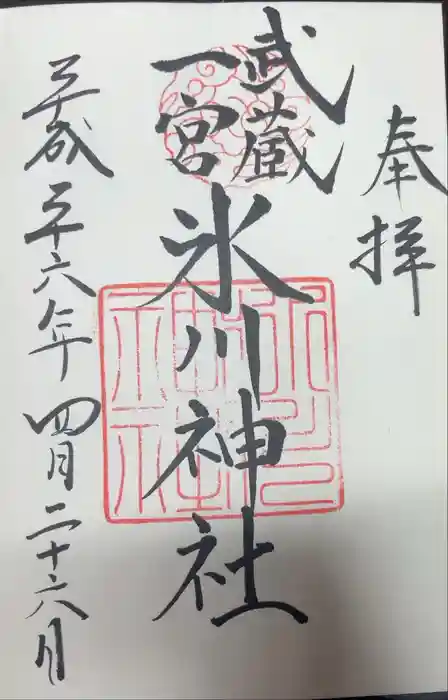 奉拝
武蔵
一宮
氷川神社
平成二十六年四月二十六日